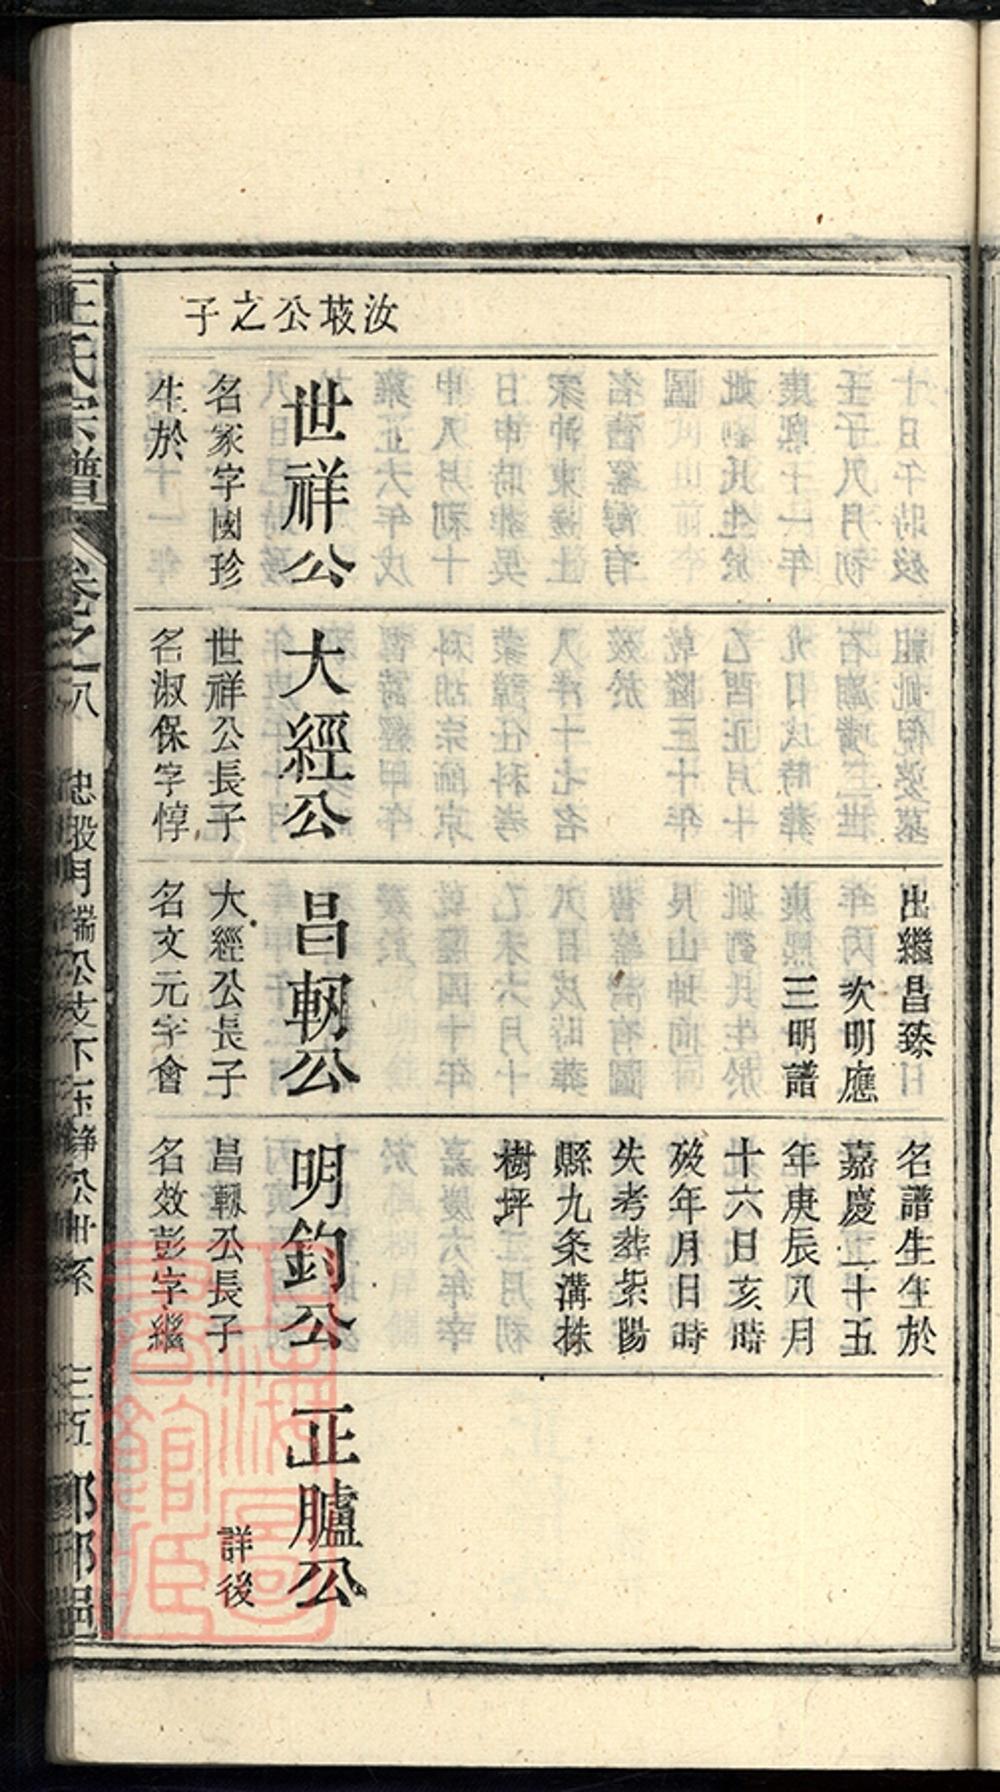 汝坺公之子
出繼昌臻
次明應
三明譜
名譜生生於
嘉慶二十五
年庚辰八月
十六日亥時
歿年月日時
失考葬紫陽
縣九条溝株
樹坪
世祥公
名家字國珍
生於
大經公
世祥公長子
名淑保字惇
昌軔公
大經公長子
名文元字會
明鈞公
昌軔公長子
名效彭字繼
正臚公
詳後
王氏宗譜
卷之一八
三五